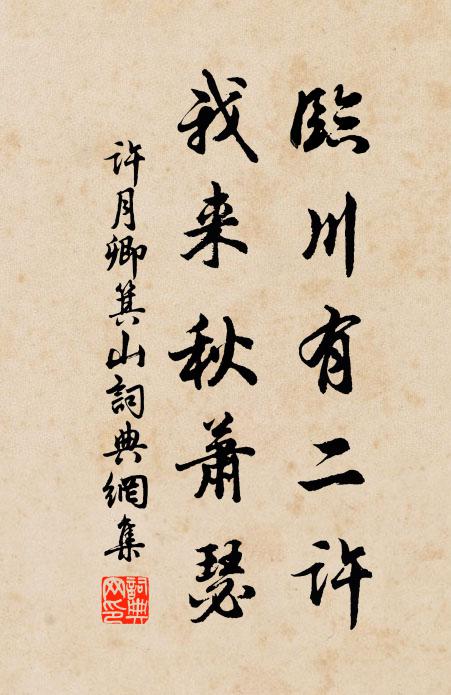 臨川有二許
我来秋蕭瑟
許月卿箕山詞典網集
詞典网印